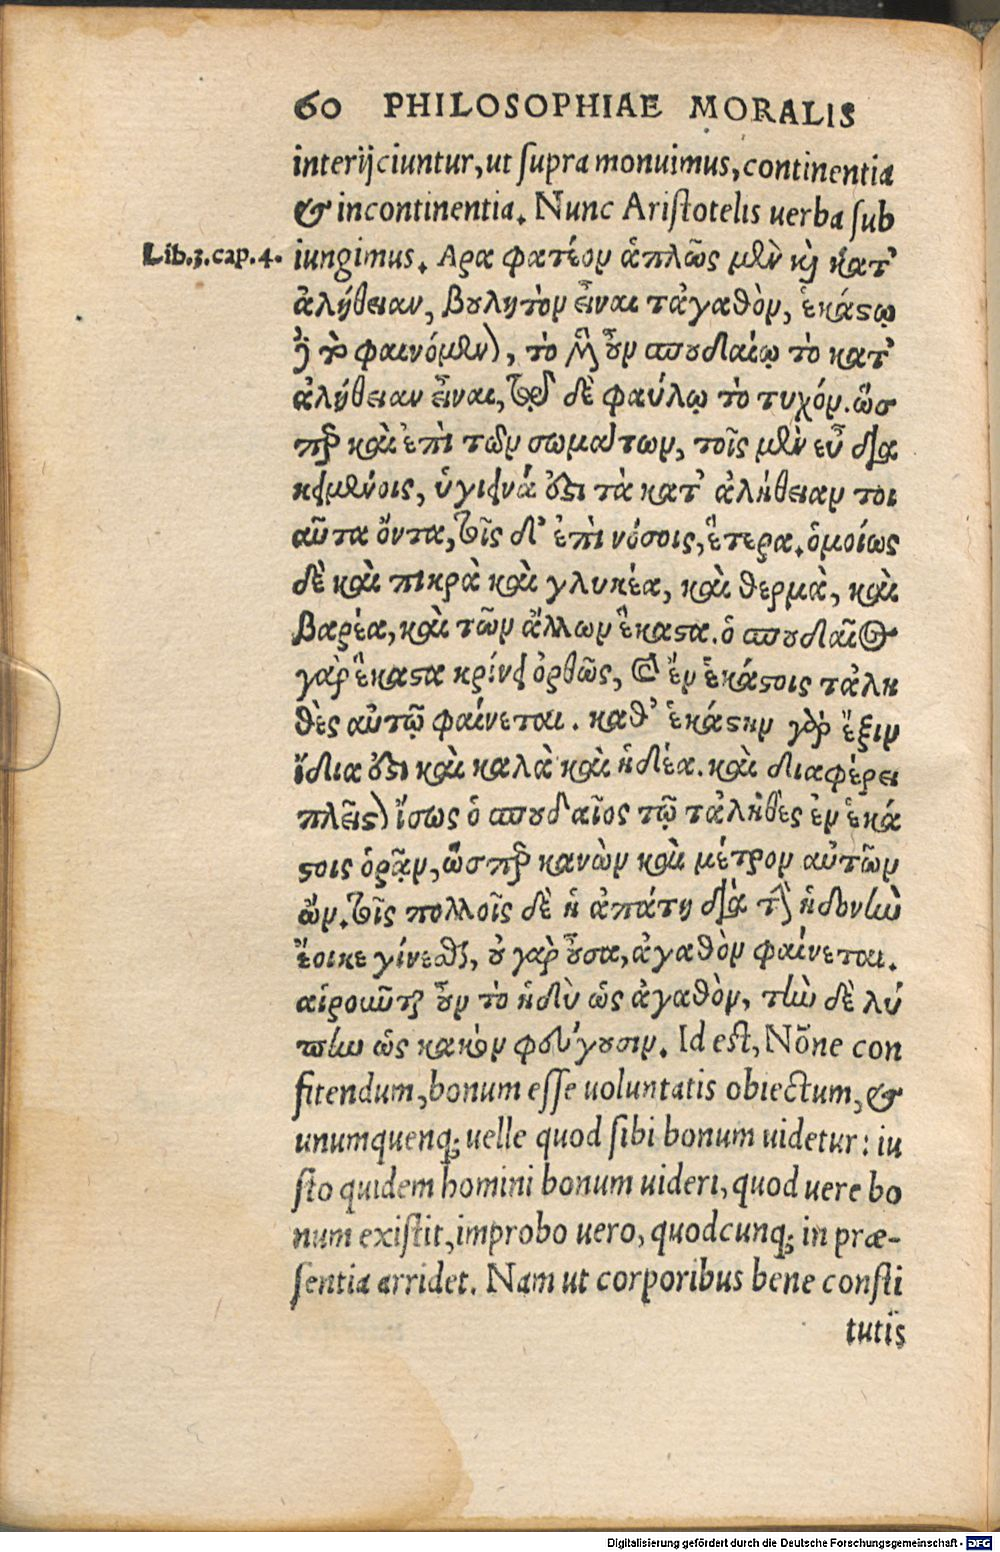 60 PHILOSOPHIAE MORALIS
interijciuntur, ut supra monuimus, continentia
& incontinentia. Nunc Aristotelis uerba sub
Lib.3.cap.4. iungimus. Αρα φατέον ἁπλῶς μὲν καὶ κατ᾽
ἀλήθειαν, βουλητὸν εἶναι τἀγαθὸν, ἑκάστῳ
δὲ τὸ φαινόμενον, τὸ μὲν οὖν σπουδαίῳ τὸ κατ᾽
ἀλήθειαν εἶναι, τῷ δὲ φαύλῳ τὸ τυχόν. ὥσ
περ καὶ ἐπὶ τῶν σωμάτων, τοῖς μὲν εὖ δια
κειμένοις, ὑγιεινά ἐστι τὰ κατ᾽ ἀλήθειαν τοι
αῦτα ὄντα, τοῖς δ᾽ ἐπὶ νόσοις, ἕτερα. ὁμοίως
δὲ καὶ πικρὰ καὶ γλυκέα, καὶ θερμὰ, καὶ
βαρέα, καὶ τῶν ἄλλων ἕκαστα. ὁ σπουδαῖος
γὰρ ἕκαστα κρίνει ὀρθῶς, καὶ ἐν ἑκάστοις τἀλη
θὲς αὐτῷ φαίνεται. καθ᾽ ἑκάστην γὰρ ἕξιν
ἴδια ἐστι καὶ καλὰ καὶ ἡδέα. καὶ διαφέρει
πλεῖστον ἴσως ὁ σπουδαῖος τῷ τἀληθὲς ἐν ἑκά
στοις ὁρᾷν, ὥσπερ κανὼν καὶ μέτρον αὐτῶν
ὤν. τοῖς πολλοῖς δὲ ἡ ἀπάτη διὰ τὴν ἡδονὴν
ἔοικε γίνεσθαι, οὐ γὰρ οὖσα, ἀγαθὸν φαίνεται.
αἱροῦνται οὖν τὸ ἡδὺ ὡς ἀγαθὸν, τὴν δὲ λύ
πην ὡς κακὸν φεύγουσιν. Id est, Nōne con
fitendum, bonum esse uoluntatis obiectum, &
unumquenq; uelle quod sibi bonum uidetur: iu
sto quidem homini bonum uideri, quod uere bo
num existit, improbo uero, quodcunq; in præ-
sentia arridet. Nam ut corporibus bene consti
tutis
Digitalisierung gefördert durch die Deutsche Forschungsgemeinschaft - DFG